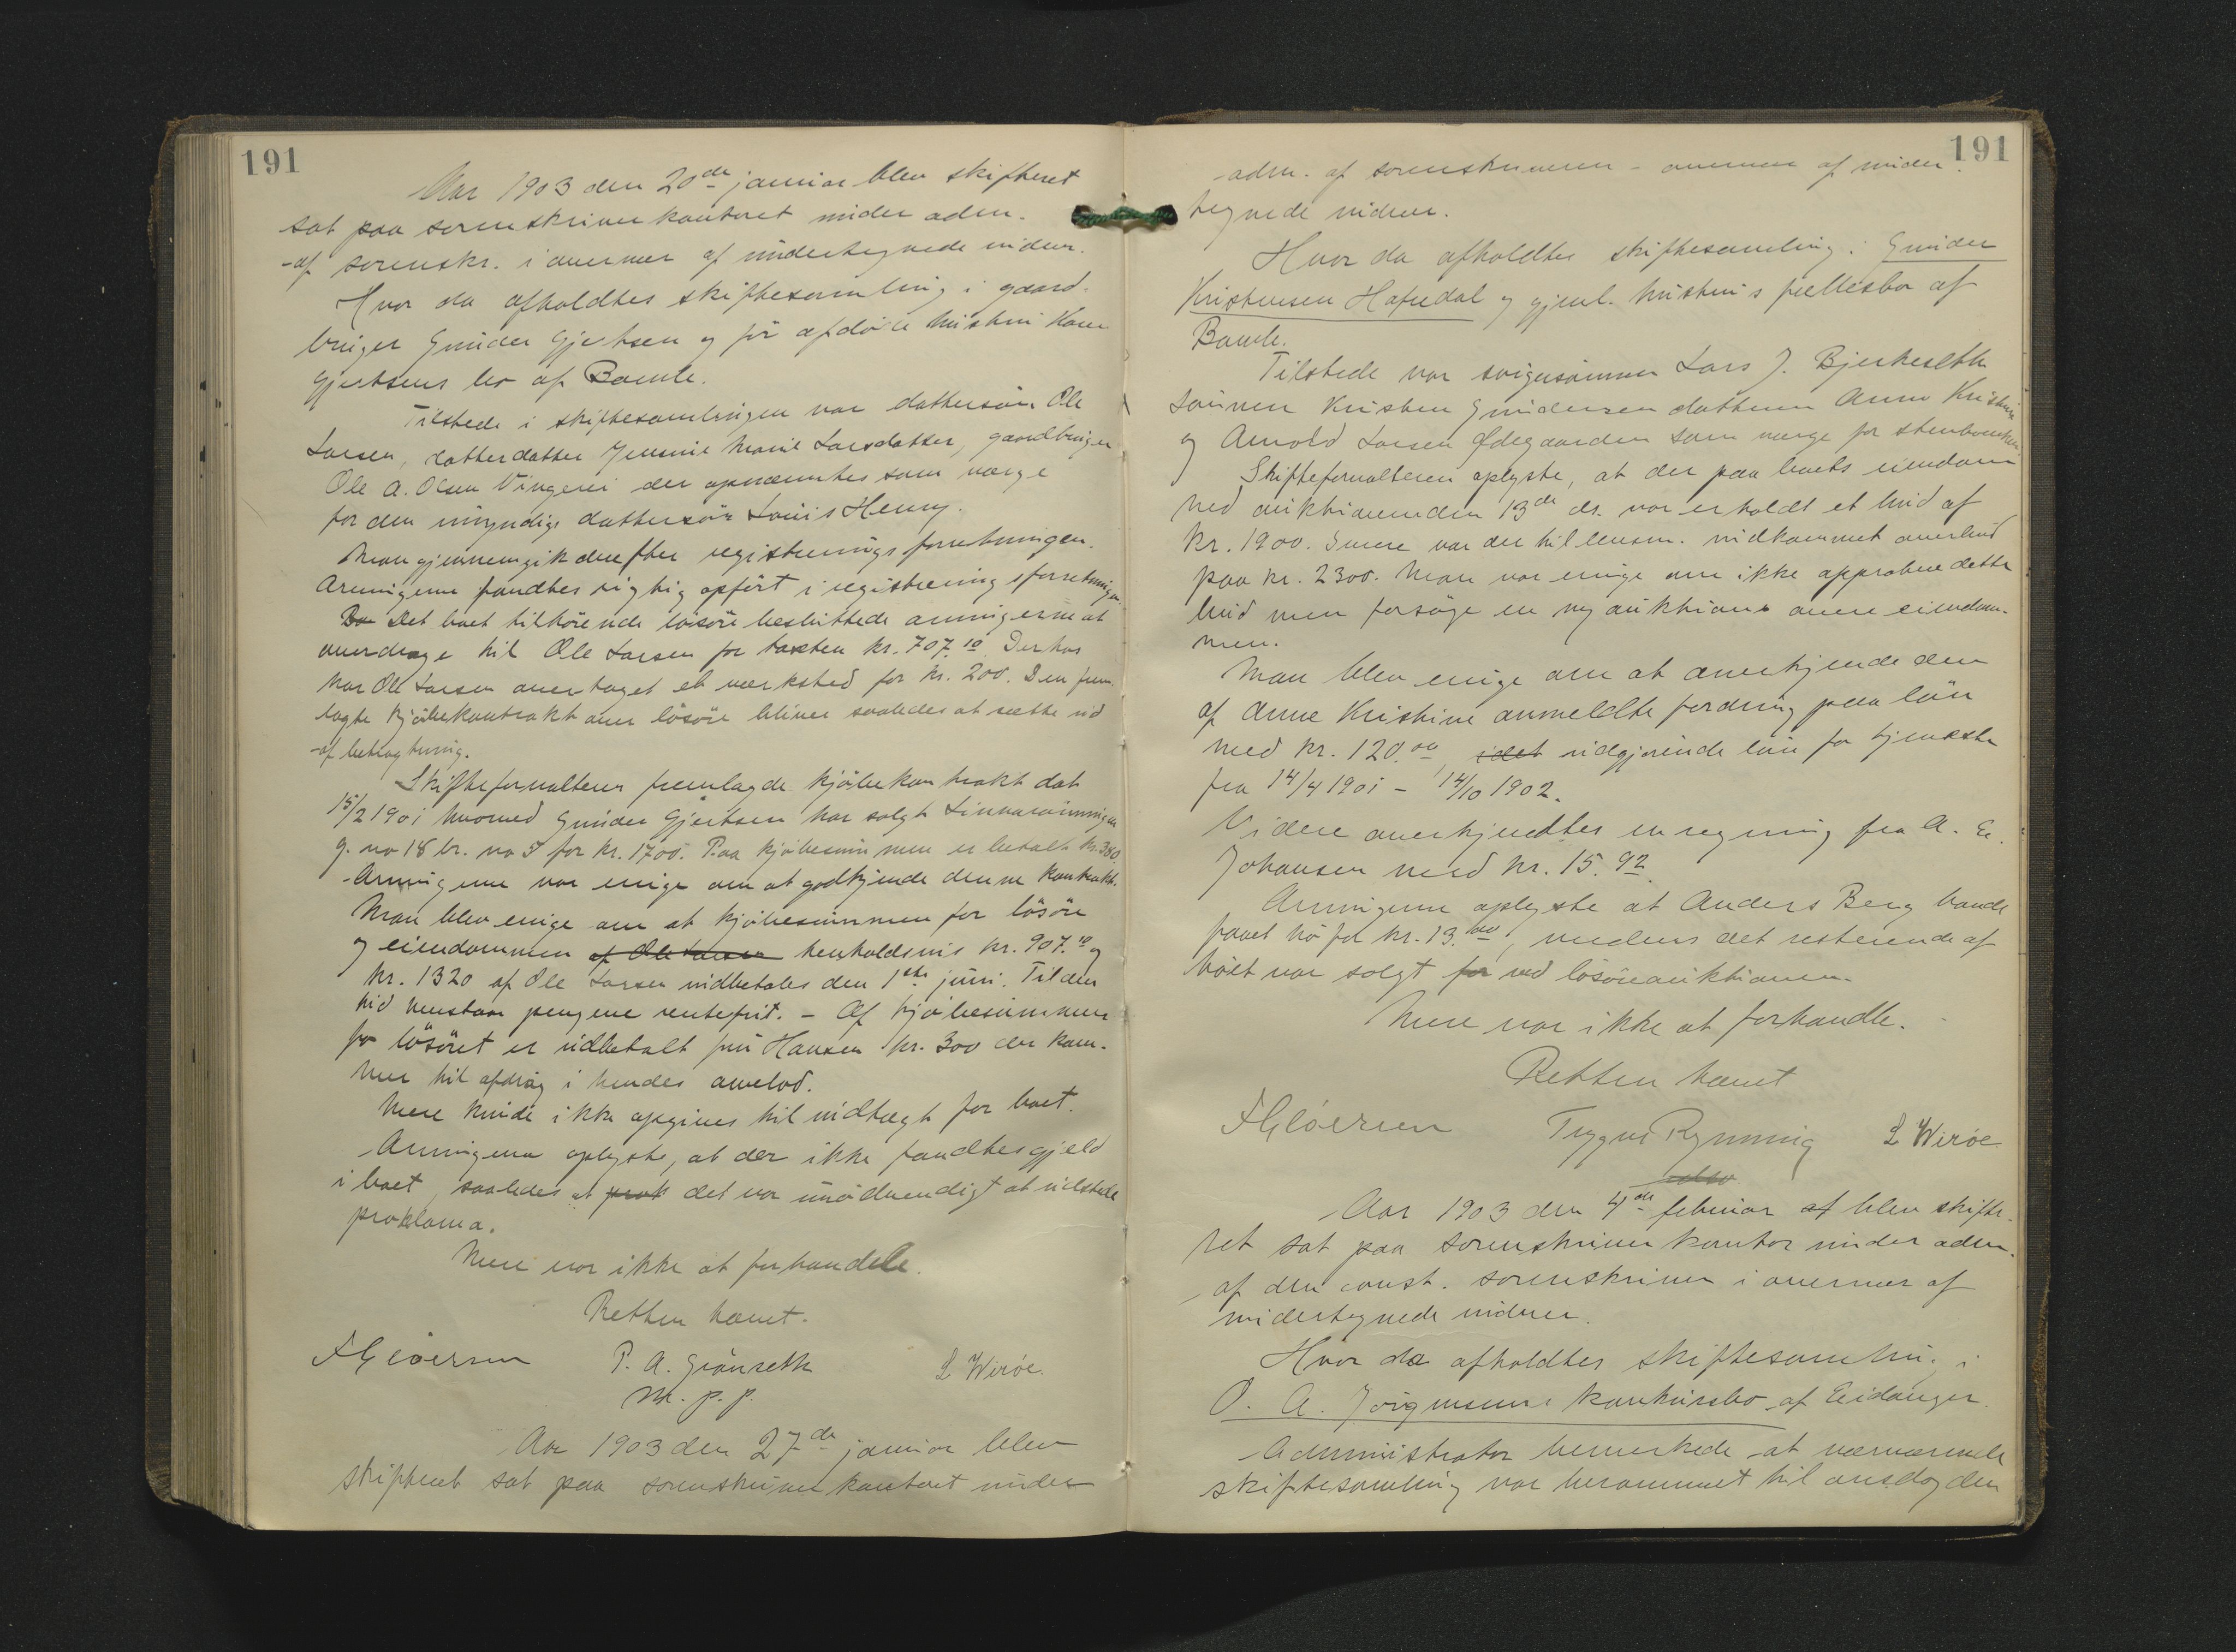 191
Aar 1903 den 20de januar blev skifteret
sat paa sorenskriverkontoret under adm.
af sorenskr. i overvær af undertegnede vidner.
Hvor da afholdtes skiftesamling i gaard-
bruger Gunder Gjertsen og før afdøde hustru Karen
Gjertsens bo af Bamle.
Tilstede i skiftesamlingen var dattersøn Ole
Larsen, datterdatter Jensine Marie Larsdatter, gaardbruger
Ole A. Olsen Vingerei der opnævntes som værge
for den umyndige dattersøn Louis Henry.
Man gjennemgik derefter registreringsforretningen.
Arvingerne fandtes rigtig opført i registreringsforretningen.
Det boet tilhørende løsøre besluttede arvingerne at
overdrage til Ole Larsen for taxten kr. 707.10. Derhos
har Ole Larsen overtaget et værksted for kr. 200. Den frem-
lagte kjøbekontrakt over løsøre bliver saaledes at sætte ud
af betragtning.
Skifteforvalteren fremlagde kjøbekontrakt dat
15/2 1901 hvorved Gunder Gjertsen har solgt
g. no 18 br. no 5 for kr. 1700. Paa kjøbesummen er betalt kr. 380.
Arvingerne var enige om at godkjende denne kontrakt.
Man blev enige om at kjøbesummen for løsøre
og eiendommen af Ole Larsen henholdsvis kr. 907.10 og
kr. 1320 af Ole Larsen indbetales den 1ste juni. Til den
tid henstaar pengene rentefrit. - Af kjøbesummen
for løsøret er udbetalt fru Hansen kr. 300 der kom-
mer til afdrag i hendes arvelod.
Mere kunde ikke opgives til indtægt for boet.
Arvingerne oplyste, at der ikke fandtes gjeld
i boet, saaledes at prok det var unødvendigt at udstede
proklama.
Mere var ikke at forhandle.
Retten hævet.
F Gløersen P. A. Grönseth L Wirøe.
m. p. p.
Aar 1903 den 27de januar blev
skifteret sat paa sorenskriverkontoret under
191
adm. af sorenskriveren - overvær af under-
tegnede vidner.
Hvor da afholdtes skiftesamling i Gunder
Kristensen Hafsedal og gjenl. hustrus fællesbo af
Bamle.
Tilstede var svigersønnen Lars J. Bjerkeseth
sønnen Kristen Gundersen datteren Anne Kristine
og Arnold Larsen Ødegaarden som værge for
Skifteforvalteren oplyste, at der paa boets eiendom
ved auktionen den 13de ds. var erholdt et bud af
kr. 1900. Senere var der til lensm. indkommet overbud
paa kr. 2300. Man var enige om ikke approbere dette
bud men forsøge en ny auktion over eiendom-
men.
Man blev enige om at anerkjende den
af Anne Kristine anmeldte fordring paa løn
med kr. 120.00, idet udgjørende løn for tjeneste
fra 14/4 1901 - 14/10 1902.
Videre anerkjendtes en regning fra A. E.
Johansen med kr. 15.92.
Arvingerne oplyste at Anders Berg havde
faaet hø for kr. 13.00, medens det resterende af
høet var solgt for ved løsøreauktionen.
Mere var ikke at forhandle.
Retten hævet
F Gløersen Trygve Rynning L Wirøe
Aar 1903 den 4de februar af blev skifte-
ret sat paa sorenskriverkontor under adm.
af den const. sorenskriver i overvær af
undertegnede vidner.
Hvor da afholdtes skiftesamling i
O. A. Jørgensens konkursbo af Eidanger.
Administrator bemerkede at nærværende
skiftesamling var berammet til onsdag den